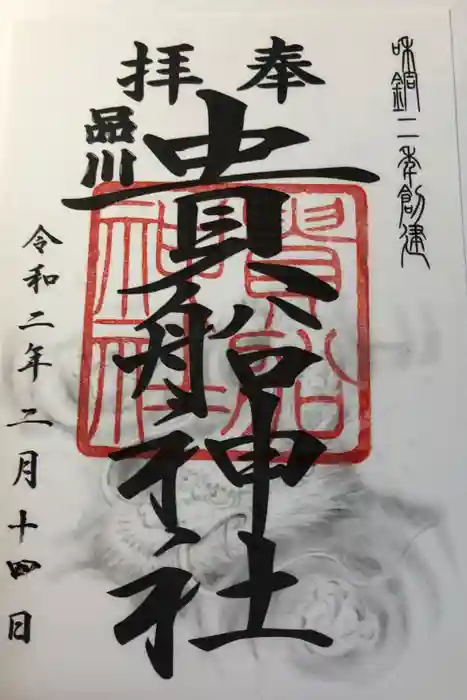 和銅二年創建
奉拝
品川
貴船神社
貴船
神社
令和二年二月十四日